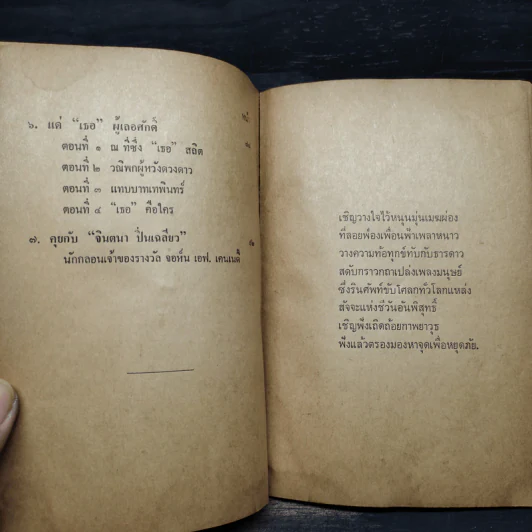 ๖. แด่ “เธอ” ผู้เลอศักดิ์
ตอนที่ ๑ ณ ที่ซึ่ง “เธอ” สถิต
ตอนที่ ๒ วณิพกผู้หวังดวงดาว
ตอนที่ ๓ แทบบาทเทพินทร์
ตอนที่ ๔ “เธอ” คือใคร
๗. คุยกับ “จินตนา ปิ่นเฉลียว”
นักกลอนเจ้าของรางวัล จอห์น เอฟ. เคนเนดี้
เชิญวางใจไว้หนุนมุ่นเมฆผ่อง
ที่ลอยฟ่องเพื่อนฟ้าเพลาหนาว
วางความท้อทุกข์ทับกับธารดาว
สดับกราวกถาเปล่งเพลงมนุษย์
ซึ่งรินศัพท์ขับโศลกทั่วโลกแหล่ง
สัจจะแห่งชีวันอันพิสุทธิ์
เชิญฟังเถิดถ้อยกาพยาวุธ
ฟังแล้วตรองมองหาจุดเพื่อหยุดภัย.